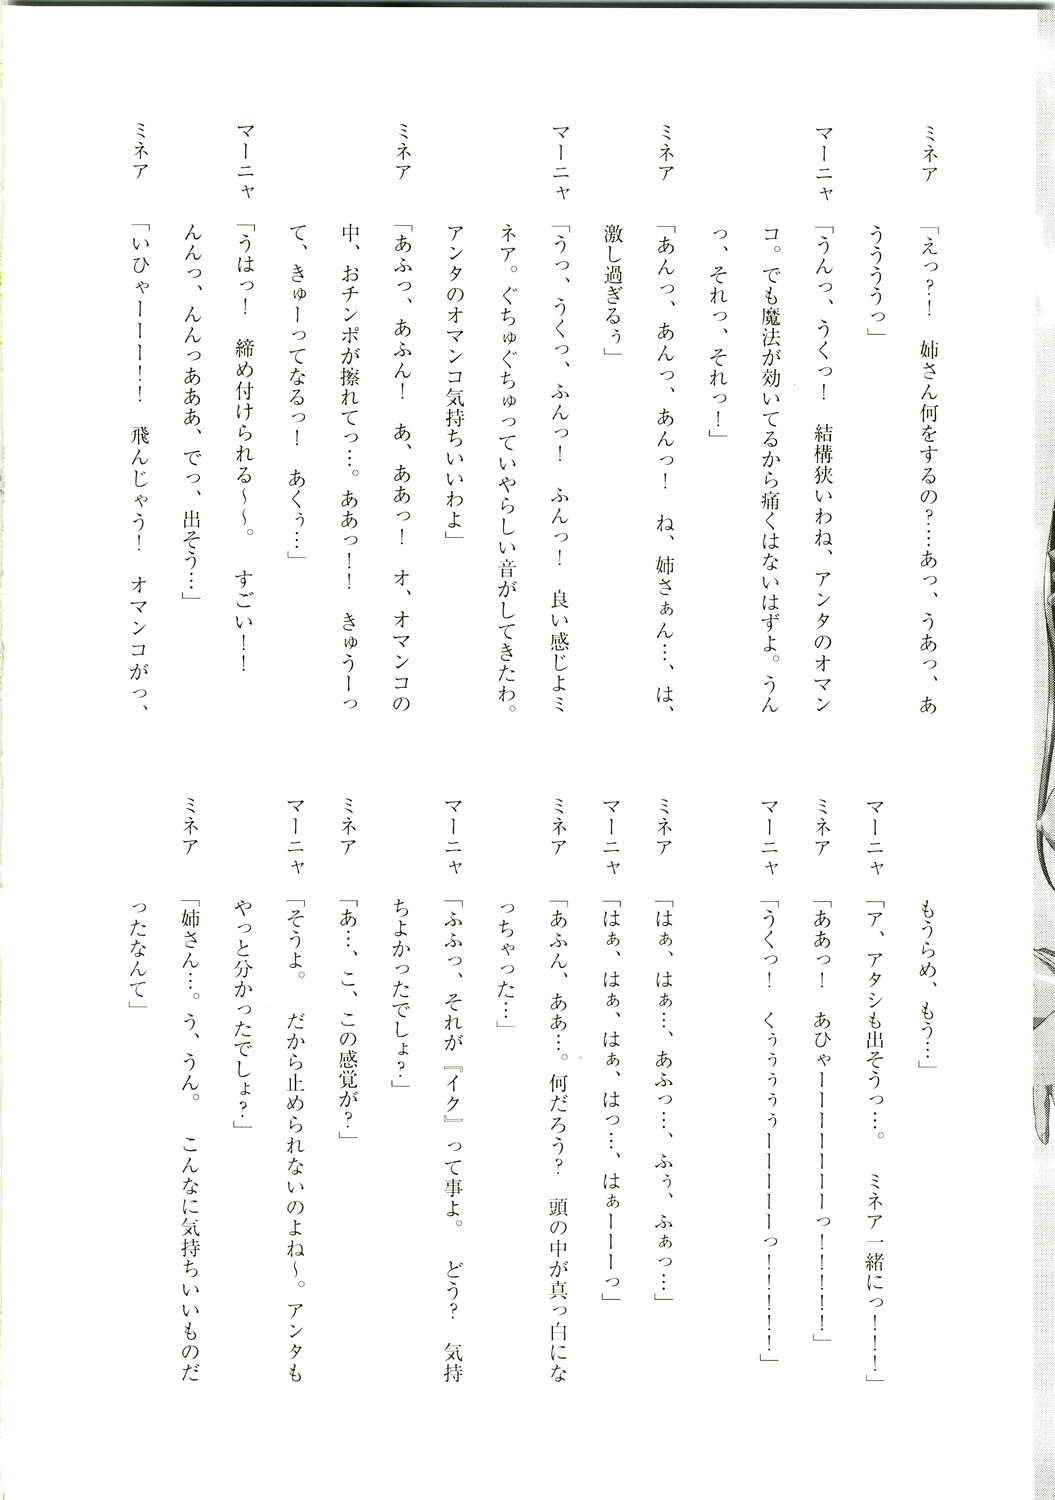 ミネア 「えっ?! 姉さん何をするの?…あっ、うあっ、あ
うううっ」
マーニャ 「うんっ、うくっ! 結構狭いわね、アンタのオマン
コ。でも魔法が効いてるから痛くはないはずよ。うん
っ、それっ、それっ!」
ミネア 「あんっ、あんっ、あんっ! ね、姉さぁん…、は、
激し過ぎるぅ」
マーニャ 「うっ、うくっ、ふんっ! ふんっ! 良い感じよミ
ネア。ぐちゅぐちゅっていやらしい音がしてきたわ。
アンタのオマンコ気持ちいいわよ」
ミネア 「あふっ、あふん! あ、ああっ! オ、オマンコの
中、おチンポが擦れてっ…。ああっ!! きゅうーっ
て、きゅーってなるっ! あくぅ…」
マーニャ 「うはっ! 締め付けられる〜〜。 すごい!!
んんっ、んんっあああ、でっ、出そう…」
ミネア 「いひゃーーーー!! 飛んじゃう! オマンコがっ、
もうらめ、もう…」
マーニャ 「ア、アタシも出そうっ…。 ミネア一緒にっ!!!」
ミネア 「ああっ! あひゃーーーーーーーっ!!!!」
マーニャ 「うくっ! くぅぅぅぅぅーーーーーっ!!!!!」
ミネア 「はぁ、はぁ…、あふっ…、ふぅ、ふぁっ…」
マーニャ 「はぁ、はぁ、はぁ、はっ…、はぁーーーっ」
ミネア 「あふん、ああ…。何だろう? 頭の中が真っ白にな
っちゃった…」
マーニャ 「ふふっ、それが『イク』って事よ。 どう? 気持
ちよかったでしょ?」
ミネア 「あ…、こ、この感覚が?」
マーニャ 「そうよ。 だから止められないのよね〜。アンタも
やっと分かったでしょ?」
ミネア 「姉さん…。う、うん。 こんなに気持ちいいものだ
ったなんて」